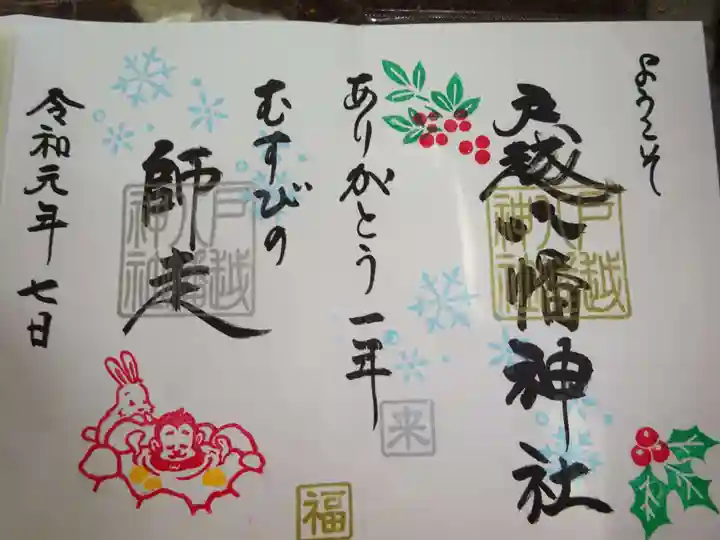 ようこそ
戸越八幡神社
戸越八幡神社
ありがとう一年
来
福
むすびの
師走
戸越八幡神社
令和元年 七日